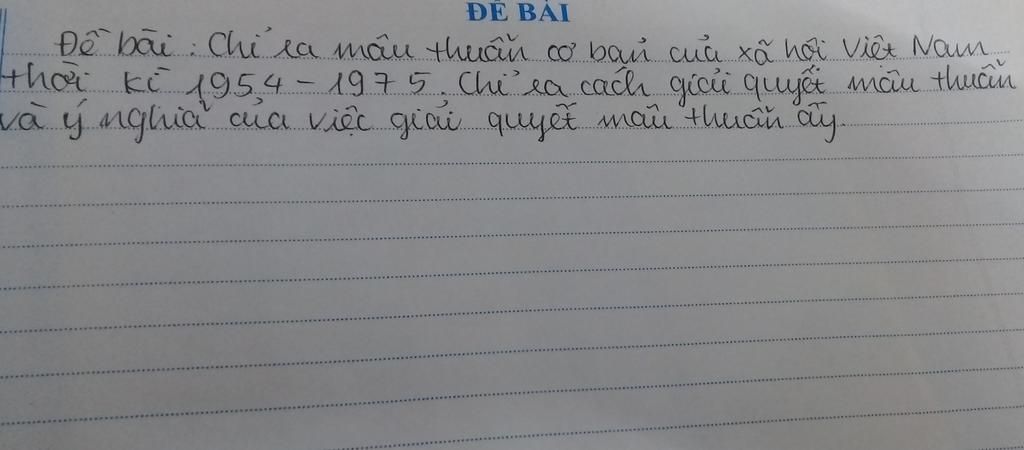 ĐỀ BÀI
Đề bài: Chỉ ra mâu thuẫn cơ bản của xã hội Việt Nam
thời kì 1954 - 1975. Chỉ ra cách giải quyết mâu thuẫn
và ý nghĩa của việc giải quyết mâu thuẫn ấy.